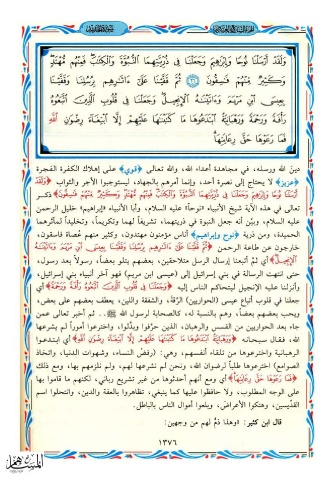 وَلَقَدْ أَرْسَلْنَا نُوحًا وَإِبْرَاهِيمَ وَجَعَلْنَا فِي ذُرِّيَّتِهِمَا النُّبُوَّةَ وَالْكِتَابَ فَمِنْهُم مُّهْتَدٍ
وَكَثِيرٌ مِّنْهُمْ فَاسِقُونَ ﴿٢٦﴾ ثُمَّ قَفَّيْنَا عَلَىٰ ءَاثَارِهِم بِرُسُلِنَا وَقَفَّيْنَا
بِعِيسَى ابْنِ مَرْيَمَ وَءَاتَيْنَاهُ الْإِنجِيلَ وَجَعَلْنَا فِي قُلُوبِ الَّذِينَ اتَّبَعُوهُ
رَأْفَةً وَرَحْمَةً وَرَهْبَانِيَّةً ابْتَدَعُوهَا مَا كَتَبْنَاهَا عَلَيْهِمْ إِلَّا ابْتِغَاءَ رِضْوَانِ اللَّهِ
فَمَا رَعَوْهَا حَقَّ رِعَايَتِهَا
دينَ الله ورسله، في مجاهدة أعداء الله، والله تعالى ﴿قوي﴾ على إهلاك الكفرة الفجرة
﴿عزيز﴾ لا يحتاج إلى نصرة أحد، وإنما أمرهم بالجهاد، ليستوجبوا الأجر والثواب ﴿وَلَقَدْ
أَرْسَلْنَا نُوحًا وَإِبْرَاهِيمَ وَجَعَلْنَا فِي ذُرِّيَّتِهِمَا النُّبُوَّةَ وَالْكِتَابَ فَمِنْهُم مُّهْتَدٍ وَكَثِيرٌ مِّنْهُمْ فَاسِقُونَ﴾ ذكر
تعالى في هذه الآية شيخ الأنبياء «نوحاً» عليه السلام، وأبا الأنبياء «إبراهيم» خليل الرحمن
عليه السلام، وبيّن أنه جعل النبوة في ذريتهما، تشريفاً لهما وتكريماً، وتخليداً لمآثرهما
الحميدة، ومن ذرية ﴿نوح وإبراهيم﴾ أناس مؤمنون مهتدون، وكثير منهم عُصاة فاسقون،
خارجون عن طاعة الرحمن ﴿ثُمَّ قَفَّيْنَا عَلَىٰ ءَاثَارِهِم بِرُسُلِنَا وَقَفَّيْنَا بِعِيسَى ابْنِ مَرْيَمَ وَءَاتَيْنَاهُ
الْإِنجِيلَ﴾ أي ثمَّ أتبعنا إرسال الرسل متلاحقين، بعضهم يتلو بعضاً، رسولاً بعد رسول،
حتى انتهت الرسالة في بني إسرائيل إلى (عيسى ابن مريم) فهو آخر أنبياء بني إسرائيل،
وأنزلنا عليه الإنجيل ليتحاكم الناس إليه ﴿وَجَعَلْنَا فِي قُلُوبِ الَّذِينَ اتَّبَعُوهُ رَأْفَةً وَرَحْمَةً﴾ أي
جعلنا في قلوب أتباع عيسى (الحواريين) الرَّأفة، والشفقة واللين، يعطف بعضهم على بعض،
ويحب بعضهم بعضاً، وهم بالنسبة له، كالصحابة لرسول الله ﷺ.. ثم أخبر تعالى عمن
جاء بعد الحواريين من القسس والرهبان، الذين حرَّفوا وبدَّلوا، واخترعوا أموراً لم يشرعها
الله، فقال سبحانه ﴿وَرَهْبَانِيَّةً ابْتَدَعُوهَا مَا كَتَبْنَاهَا عَلَيْهِمْ إِلَّا ابْتِغَاءَ رِضْوَانِ اللَّهِ﴾ أي ابتدعوا
الرهبانية واخترعوها من تلقاء أنفسهم، وهي: (رفضُ النساء، وشهوات الدنيا، واتخاذ
الصوامع) اخترعوها طلباً لرضوان الله، ونحن لم نشرعها لهم، ولم نلزمهم بها، ومع ذلك
﴿فَمَا رَعَوْهَا حَقَّ رِعَايَتِهَا﴾ أي ومع أنهم أحدثوها من غير تشريع رباني، لكنهم ما قاموا بها
على الوجه المطلوب، ولا حافظوا عليها كما ينبغي، تظاهروا بالعفة والدين، وانتحلوا اسم
القدِّيسين، وهتكوا الأعراض، وبلعوا أموال الناس بالباطل.
قال ابن كثير: (وهذا ذمٌّ لهم من وجهين:
١٣٧٦